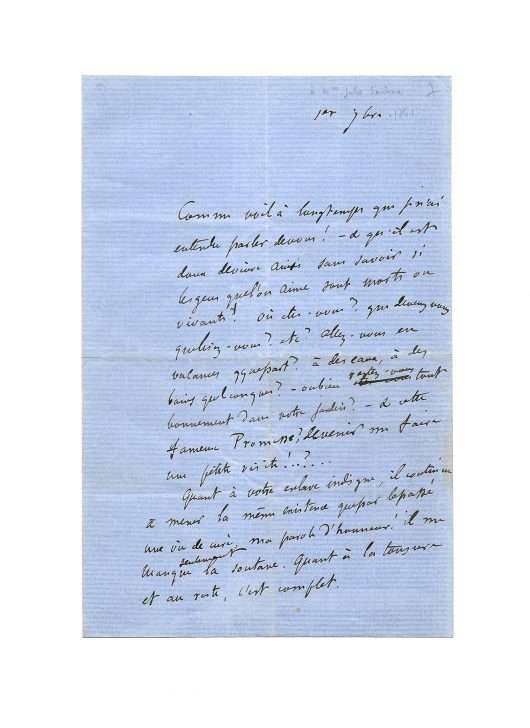 à Mme Jules Sandeau
1er 7bre. 1861
Comme voilà longtemps que je n'ai
entendu parler de vous! – & qu'il est
doux de vivre ainsi sans savoir si
les gens que l'on aime sont morts ou
vivants! Où êtes-vous? que devenez-vous
que lisez-vous? etc? allez-vous en
vacances qque part? à des eaux, à des
bains quelconques? – ou bien restez-vous tout
bonnement dans votre jardin? – & cette
fameuse Promesse? de venir me faire
une petite visite!..?...
Quant à votre esclave indigne, il continue
à mener la même existence que par le passé
une vie de curé, ma parole d'honneur! il me
manque seulement la soutane. Quant à la tonsure
et au reste, c'est complet.